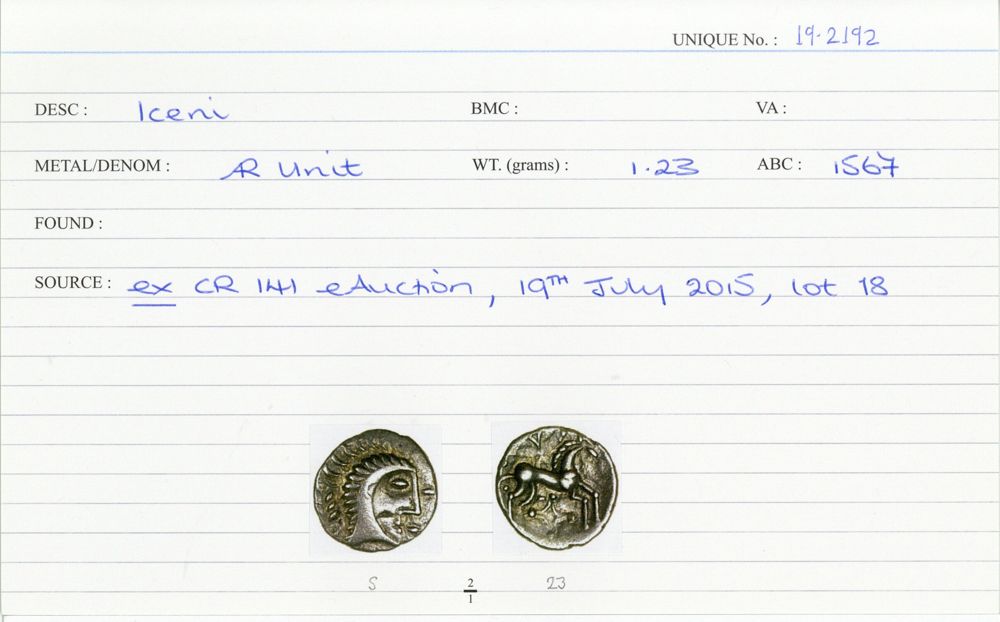 UNIQUE No. : 19·2192
DESC : Iceni BMC : VA :
METAL/DENOM : AR Unit WT. (grams) : 1·23 ABC : 1567
FOUND :
SOURCE : ex CR 141 eAuction, 19TH July 2015, lot 18
S 2/1 23